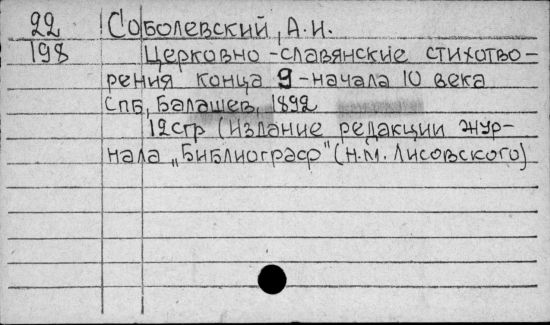 22 Соболевский, А.И.
198 Церковно-славянские стихотво-
рения конца 9-начала 10 века
СПб, Балашев, 1892
12стр (Издание редакции жур-
нала „Библиограф" (Н.М. Лисовского)